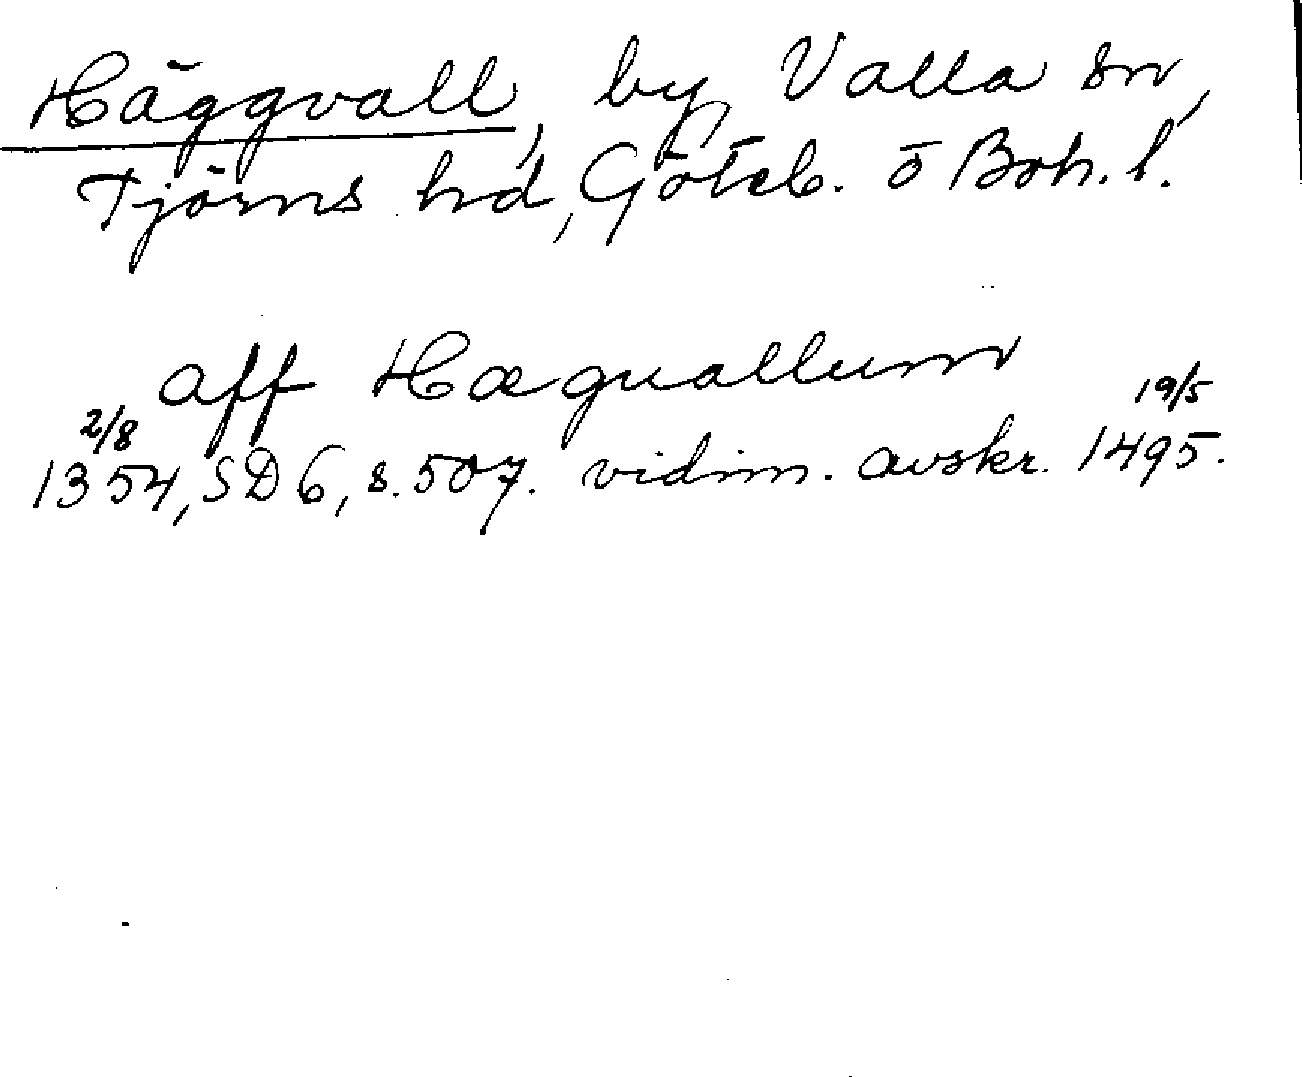 Häggvall, by Valla sn,
Tjörns hd, Göteb. o Boh. l.
aff Hæguallum
2/8 19/5
1354, SD 6, s. 507. vidim. avskr. 1495.